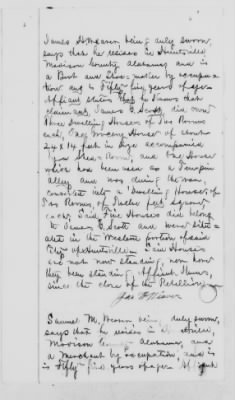 James H. Mason being duly sworn,
says that he resides in Huntsville
Madison County Alabama, and is
a Boot and Shoe maker by occupa
tion and is Fifty five years of age.
Affiant states that he knows that
claimant James G. Scott, did own
three Dwelling Houses of Two Rooms
each, One Grocery House of about
24 x 14 feet in size accompanied
by a Shed Room, and One House
which has been used as a Tenpin
Alley and was during the war,
converted into a Dwelling House of
Two Rooms, of Twelve feet square
each. Said Five Houses did belong
to James G. Scott and were situ-
ated in the Western portion of said
City of Huntsville. Said Houses
are not now standing, nor have
they been standing, Affiant knows,
since the close of the Rebellion.
Jas H Mason
Samuel M. being duly sworn,
says that he resides in Huntsville,
Madison County Alabama, and
a Merchant by occupation, and is
Fifty five years of age.